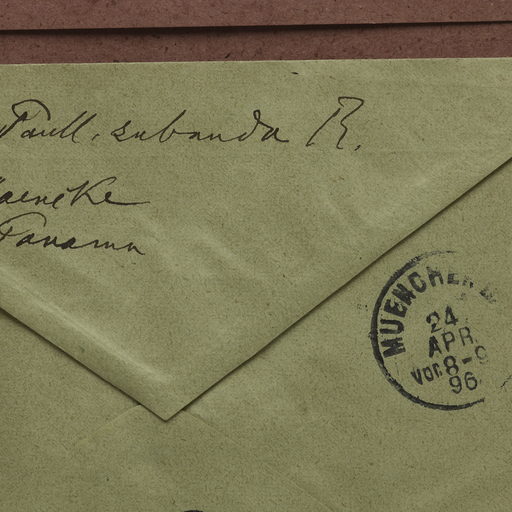 Paull. subanda R.
Panama
MUENCHEN
24.
APR.
Vor. 8-9
96